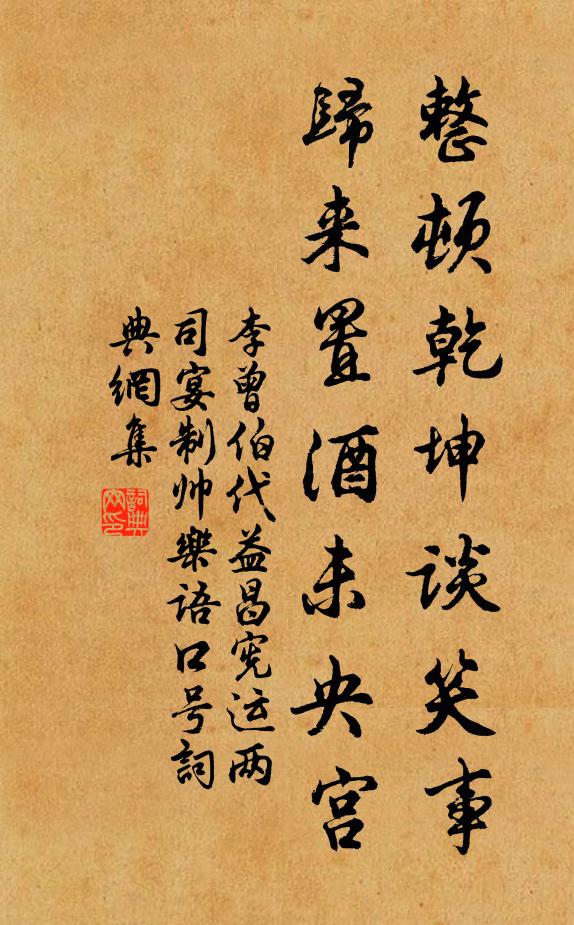 整顿乾坤谈笑事
歸来置酒未央宫
李曾伯代益昌宪运两
司宴制帅樂语口号詞
典網集
詞典
网印